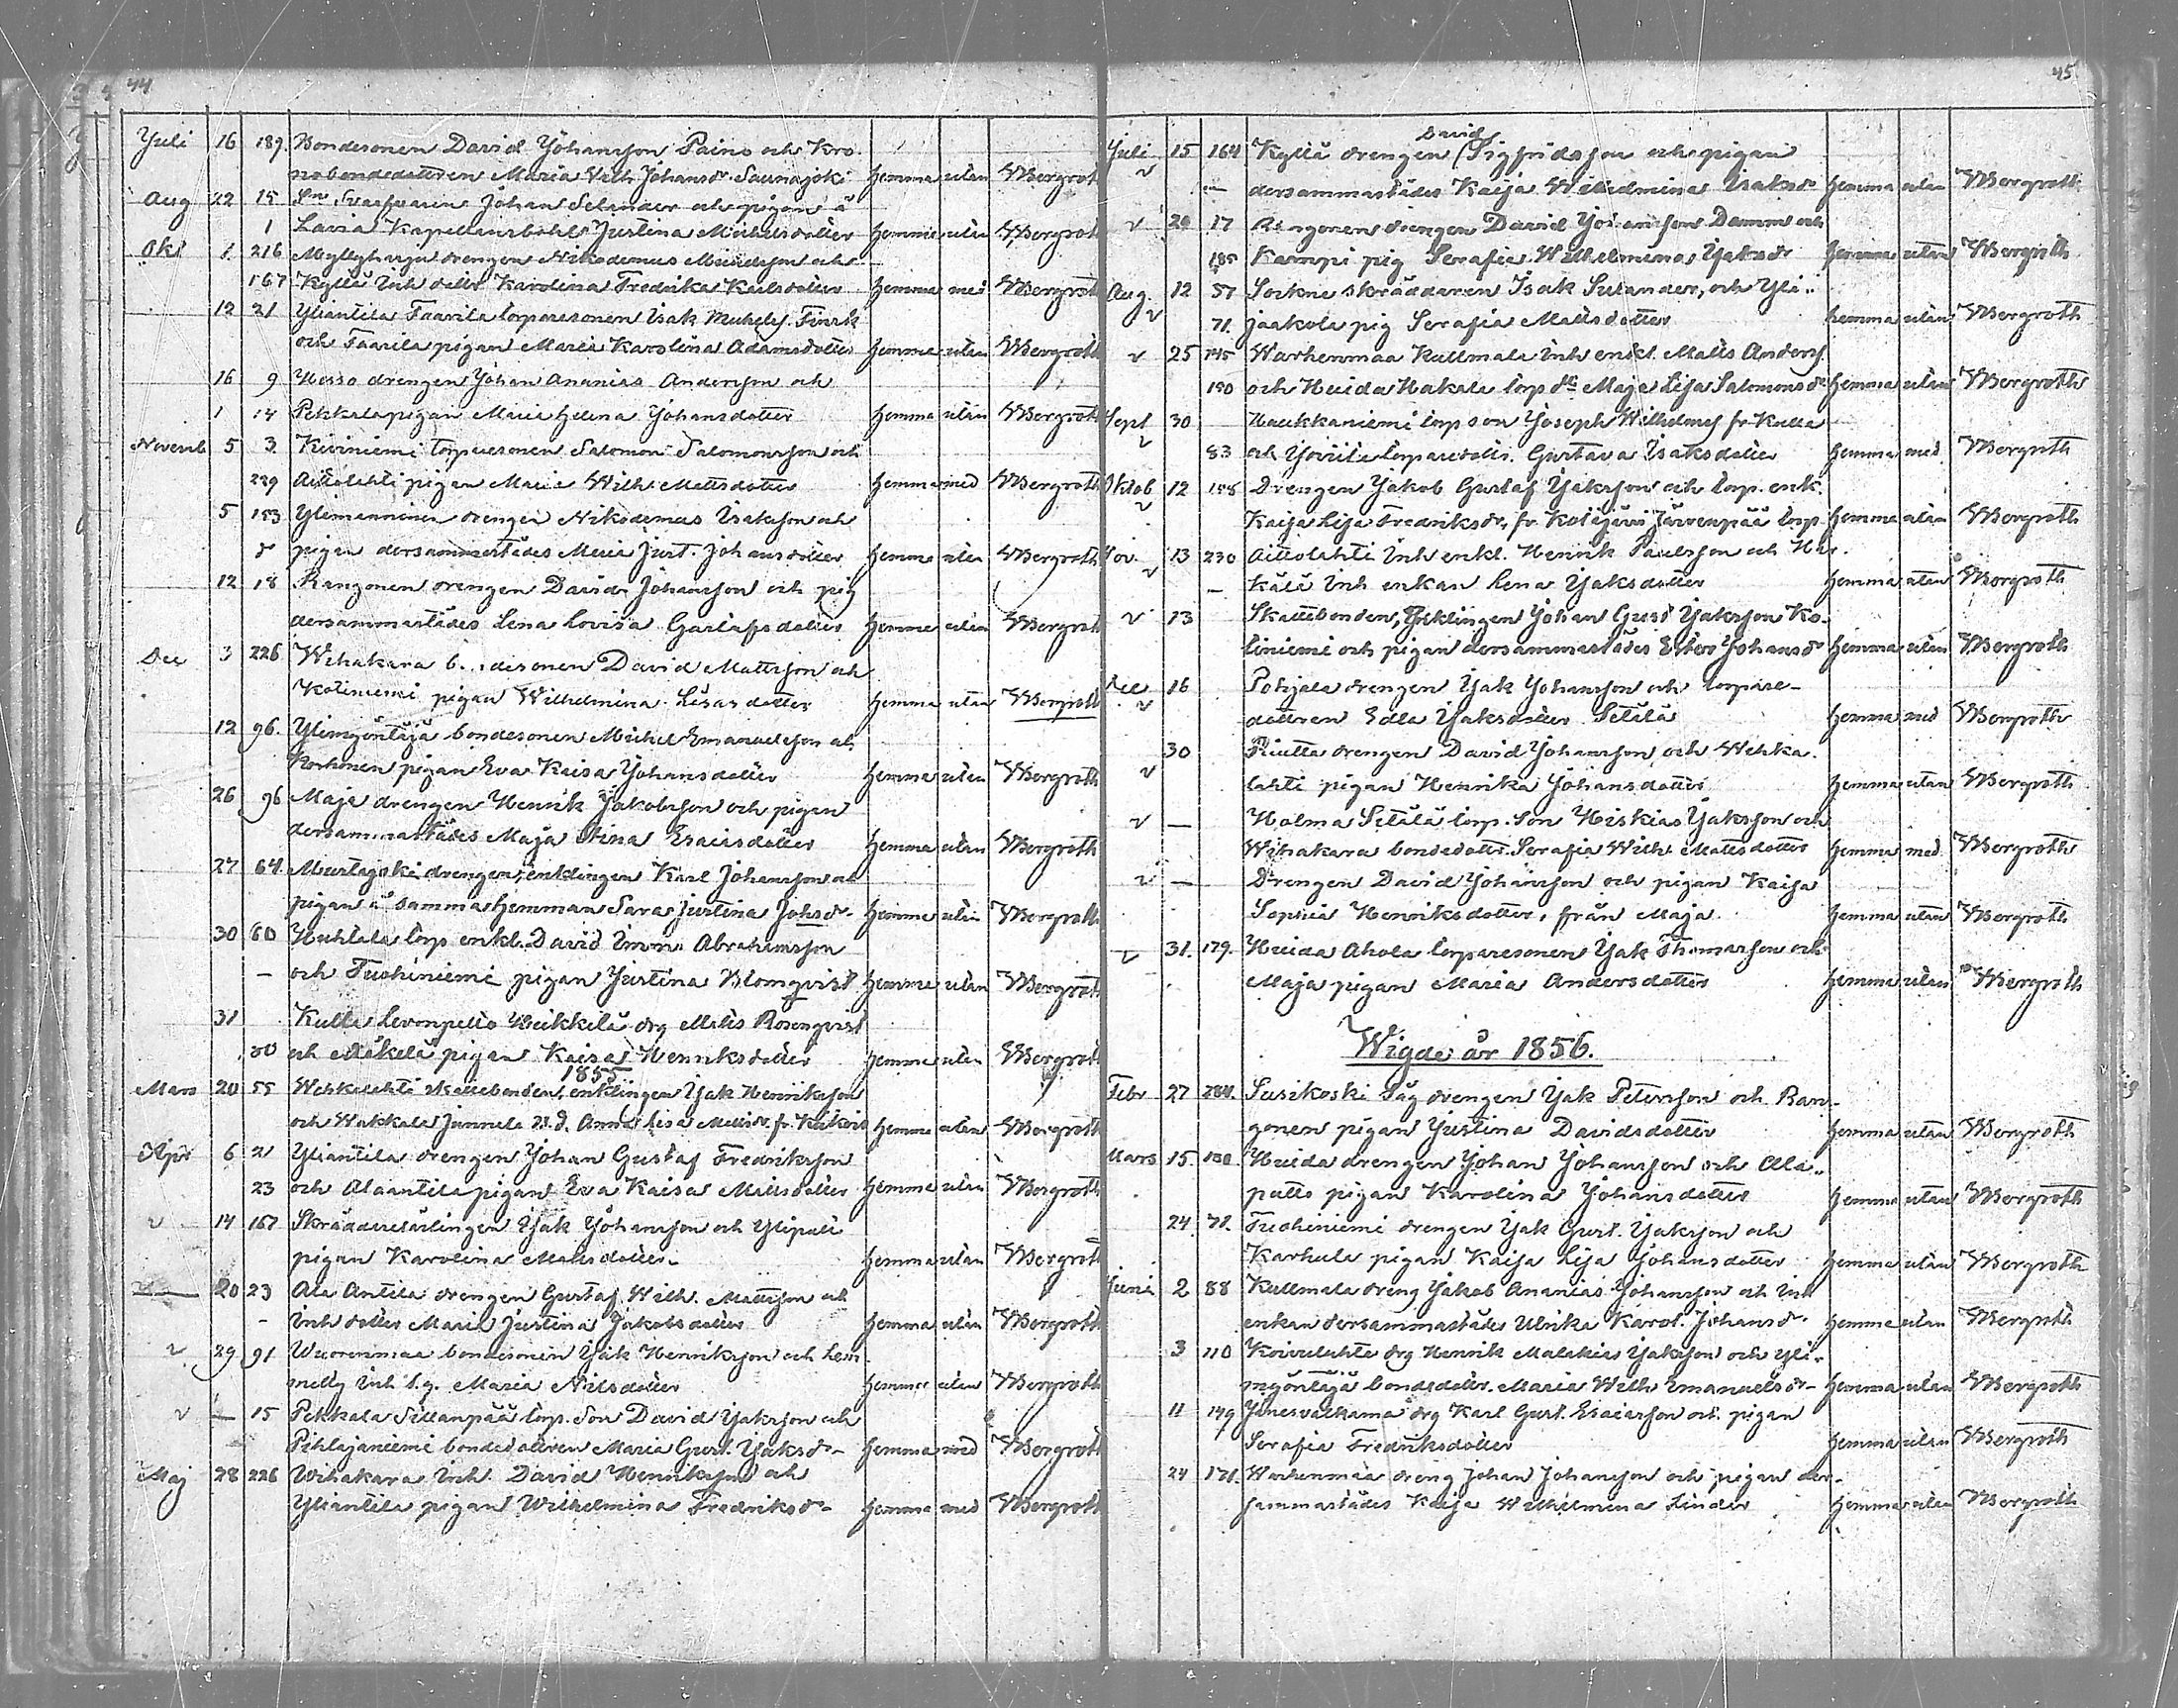 44
Juli 16 189. Bondesonen David Johansson Paino och Kro
nobondedottren Maria Wilh Johansdr. Saunajoki hemma utan WBergroth
Aug 22 15 Johan Selander och pigan å
1 Lavia Kapellansbohl Justina Michelsdotter hemma utan WBergroth
Okt 1 216 Myllyharju drengen Nikodemus och
167 Kyllä Inh dottr Karolina Fredrika Karlsdotter hemma med WBergroth
12 21 Yliantila Faarila torparesonen Isak Michelss. Finsk
och Faarila pigan Maria Karolina Adamsdotter hemma utan WBergroth
16 9 drengen Johan Ananias Andersson och
1 14 Pekkala pigan Maria Helena Johansdotter hemma utan WBergroth
Novemb 5 3 Kiviniemi torparesonen Salomon Salomonsson och
229 Aittolahti pigan Maria Wilh. Mattsdotter hemma med WBergroth
5 153 Ylimenninen drengen Nikodemus Isaksson och
pigan dersammastädes Maria Just. Johansdotter hemma utan WBergroth
12 18 Rangonen drengen David Johansson och pig
dersammastädes Lena Lovisa Gustafsdotter hemma utan WBergroth
Dec 3 226 Wihakara b...desonen David Mattsson och
Kotiniemi pigan Wilhelmina Lisasdotter hemma utan WBergroth
12 96. Ylimyöntäjä bondesonen Michel Emanuelsson och
Korhonen pigan Eva Kaisa Johansdotter hemma utan WBergroth
26 96 Maja drengen Henrik Jakobsson och pigan
dersammastädes Maja Stina Esaiasdotter hemma utan WBergroth
27 64. drengen, enklingen Karl Johansson och
pigan å samma hemman Sara Justina Johsdr. hemma utan WBergroth
30 60 Huhtala torp enkl. David Imm. Abrahamsson
— och Tuohiniemi pigan Justina Blomqvist hemma utan WBergroth
31 Kulla Levonpelto Heikkilä drg Matts Rosenqvist
80 och Mäkelä pigan Kaisa Henriksdotter hemma utan WBergroth
1855
Mars 20 55 Wehkalahti skattebonden, enklingen Isak Henriksson
och Wakkala Junnela Anna Lisa Mattsdr. fr. hemma utan WBergroth
Apr 6 21 Yliantila drengen Johan Gustaf Fredriksson
23 och Alaantila pigan Eva Kaisa Mattsdotter hemma utan WBergroth
v 14 167 Skräddarelärlingen Isak Johansson och
pigan Karolina Mattsdotter. hemma utan WBergroth
20 23 Ala Antila drengen Gustaf Wilh. Mattsson och
- inh dotter Maria Justina Jakobsdotter hemma utan WBergroth
v 29 91 Wuorenmaa bondesonen Isak Henriksson och
inh Maria Nilsdotter hemma utan WBergroth
v — 15 Pekkala Sillanpää torp. Son David Isaksson och
Pihlajaniemi bondedottren Maria Gust. Isaksdr- hemma med WBergroth
Maj 28 226 Wihakara inh. David Henriksson och
Yliantila pigan Wilhelmina Fredriksdr- hemma med WBergroth
45
David
Juli 15 164 Kyllä drengen (Sigfridsson och pigan
v — dersammastädes Kaija Wilhelmina Isaksdr hemma utan WBergroth
v 20 17 Rangonen drengen David Johansson Damm och
185 Karmpi pig Serafia Wilhelmina Isaksdr hemma utan WBergroth
Aug. 12 57 Sockne skräddaren Isak Sulander, och Yli-
v 71. jaakola pig Serafia Mattsdotter hemma utan WBergroth
v 25 145 Warhenmaa Kullmala inh enkl. Matts Anderss.
150 och Huida Hakala torp dr Maja Lisa Salomonsdr hemma utan WBergroth
Sept 30 Haukkaniemi torp son Joseph Wilhelmss fr Kulla
v 83 och torparedottr. Gustava Isaksdotter hemma med WBergroth
Oktob 12 158 Drengen Jakob Gustaf Isaksson och torp. enk.
v Kaija Lisa Fredriksdr, fr. Järvenpää torp hemma utan WBergroth
Nov. 13 230 Aittolahti inh enkl. Henrik Paulsson och
v — inh enkan Lena Isaksdotter hemma utan WBergroth
v 13 Skattebonden, Enklingen Johan Gust Isaksson Ko-
tiniemi och pigan dersammastädes Ester Johansdr hemma utan WBergroth
Dec 16 Pohjala drengen Isak Johansson och torpare-
v dottren Edla Isaksdotter Setälä hemma med WBergroth
30 Riutta drengen David Johansson, och Wehka-
v lahti pigan Henrika Johansdotter hemma utan WBergroth
v — Holma Setälä torp. Son Hiskias Isaksson och
Wihakara bondedottr. Serafia Wilh Mattsdotter hemma med WBergroth
v — Drengen David Johansson och pigan Kaisa
Sophia Henriksdotter, från Maja. hemma utan WBergroth
v 31. 179. Huida Ahola torparesonen Isak Thomasson och
Maja pigan Maria Andersdotter hemma utan WBergroth
Wigde år 1856.
Febr 27 Susikoski Såg drengen Isak Petersson och Ran-
gonen pigan Justina Davidsdotter hemma utan WBergroth
Mars 15. 150. Huida drengen Johan Johansson och Ala-
patto pigan Karolina Johansdotter hemma utan WBergroth
24 71. Tuohiniemi drengen Isak Gust. Isaksson och
Karhula pigan Kaija Lisa Johansdotter hemma utan WBergroth
Juni 2 88 Kullmala dreng Jakob Ananias Johansson och inh
enkan dersammastädes Ulrika Karol. Johansdr. hemma utan WBergroth
3 110 Koivulahti drg Henrik Malakias Isaksson och Yli-
myöntäjä bondedottr. Maria Wilh Emanuelsdr- hemma utan WBergroth
11 149 drg Karl Gust. Esaiasson och pigan
Serafia Fredriksdotter hemma utan WBergroth
24 171. Warhenmaa dreng Johan Johansson och pigan der-
sammastädes Kaija Wilhelmina Linder hemma utan WBergroth